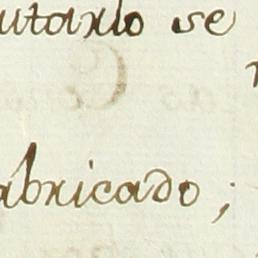 utarlo se
abricado;